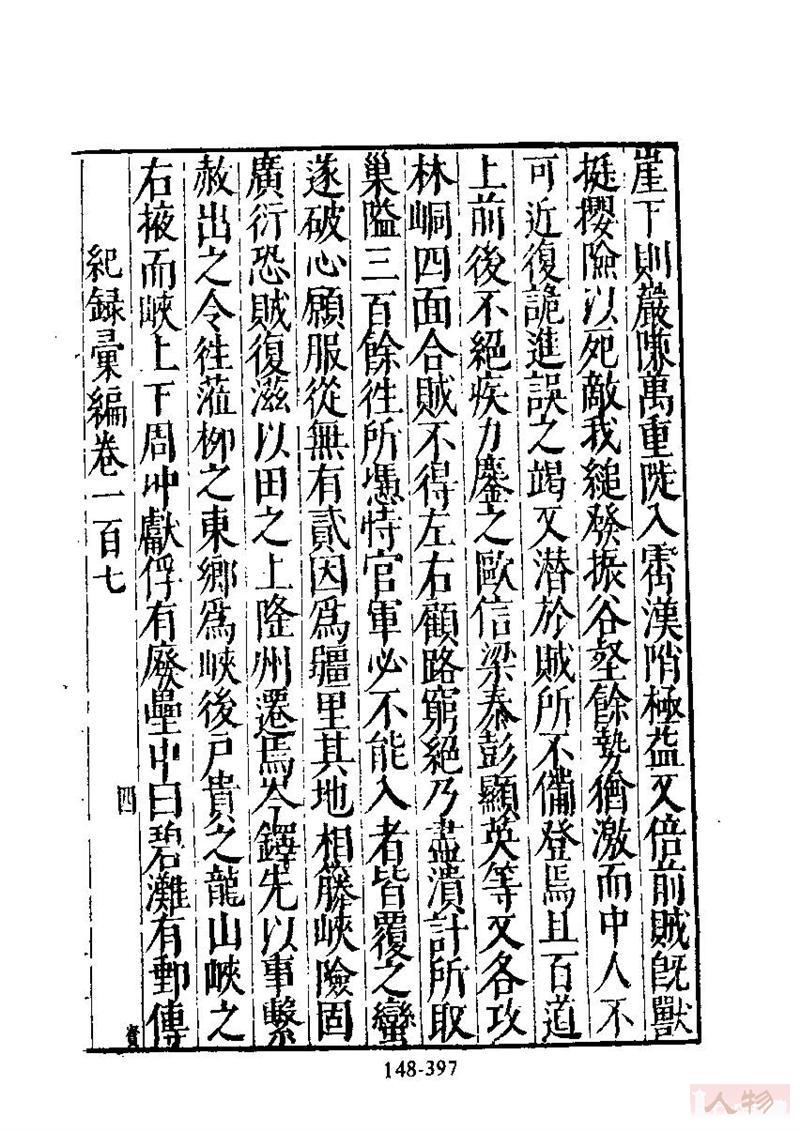 崖下則嚴陳萬重陡入霄漢哨極葢又倍前賊旣獸
挺攖險以死敵我縋發振谷壑餘勢猶激而中人不
可近復詭進誤之竭又潛於賊所不備登焉且百道
上前後不絕疾力鏖之歐信梁泰彭顯英等又各攻
林峒四面合賊不得左右顧路窮絕乃盡潰計所取
巢隘三百餘徃所憑恃官軍必不能入者皆覆之蠻
遂破心願服從無有貳因爲疆里其地相籐峽險固
廣衍恐賊復滋以田之上隆州遷焉岑鐸先以事繫
赦出之令徃蒞柳之東鄉爲峽後戸貴之龍山峽之
右掖而峽上下周冲獻俘有廢壘中曰碧灘有郵傳
紀録彙編卷一百七
四
148-397
人物